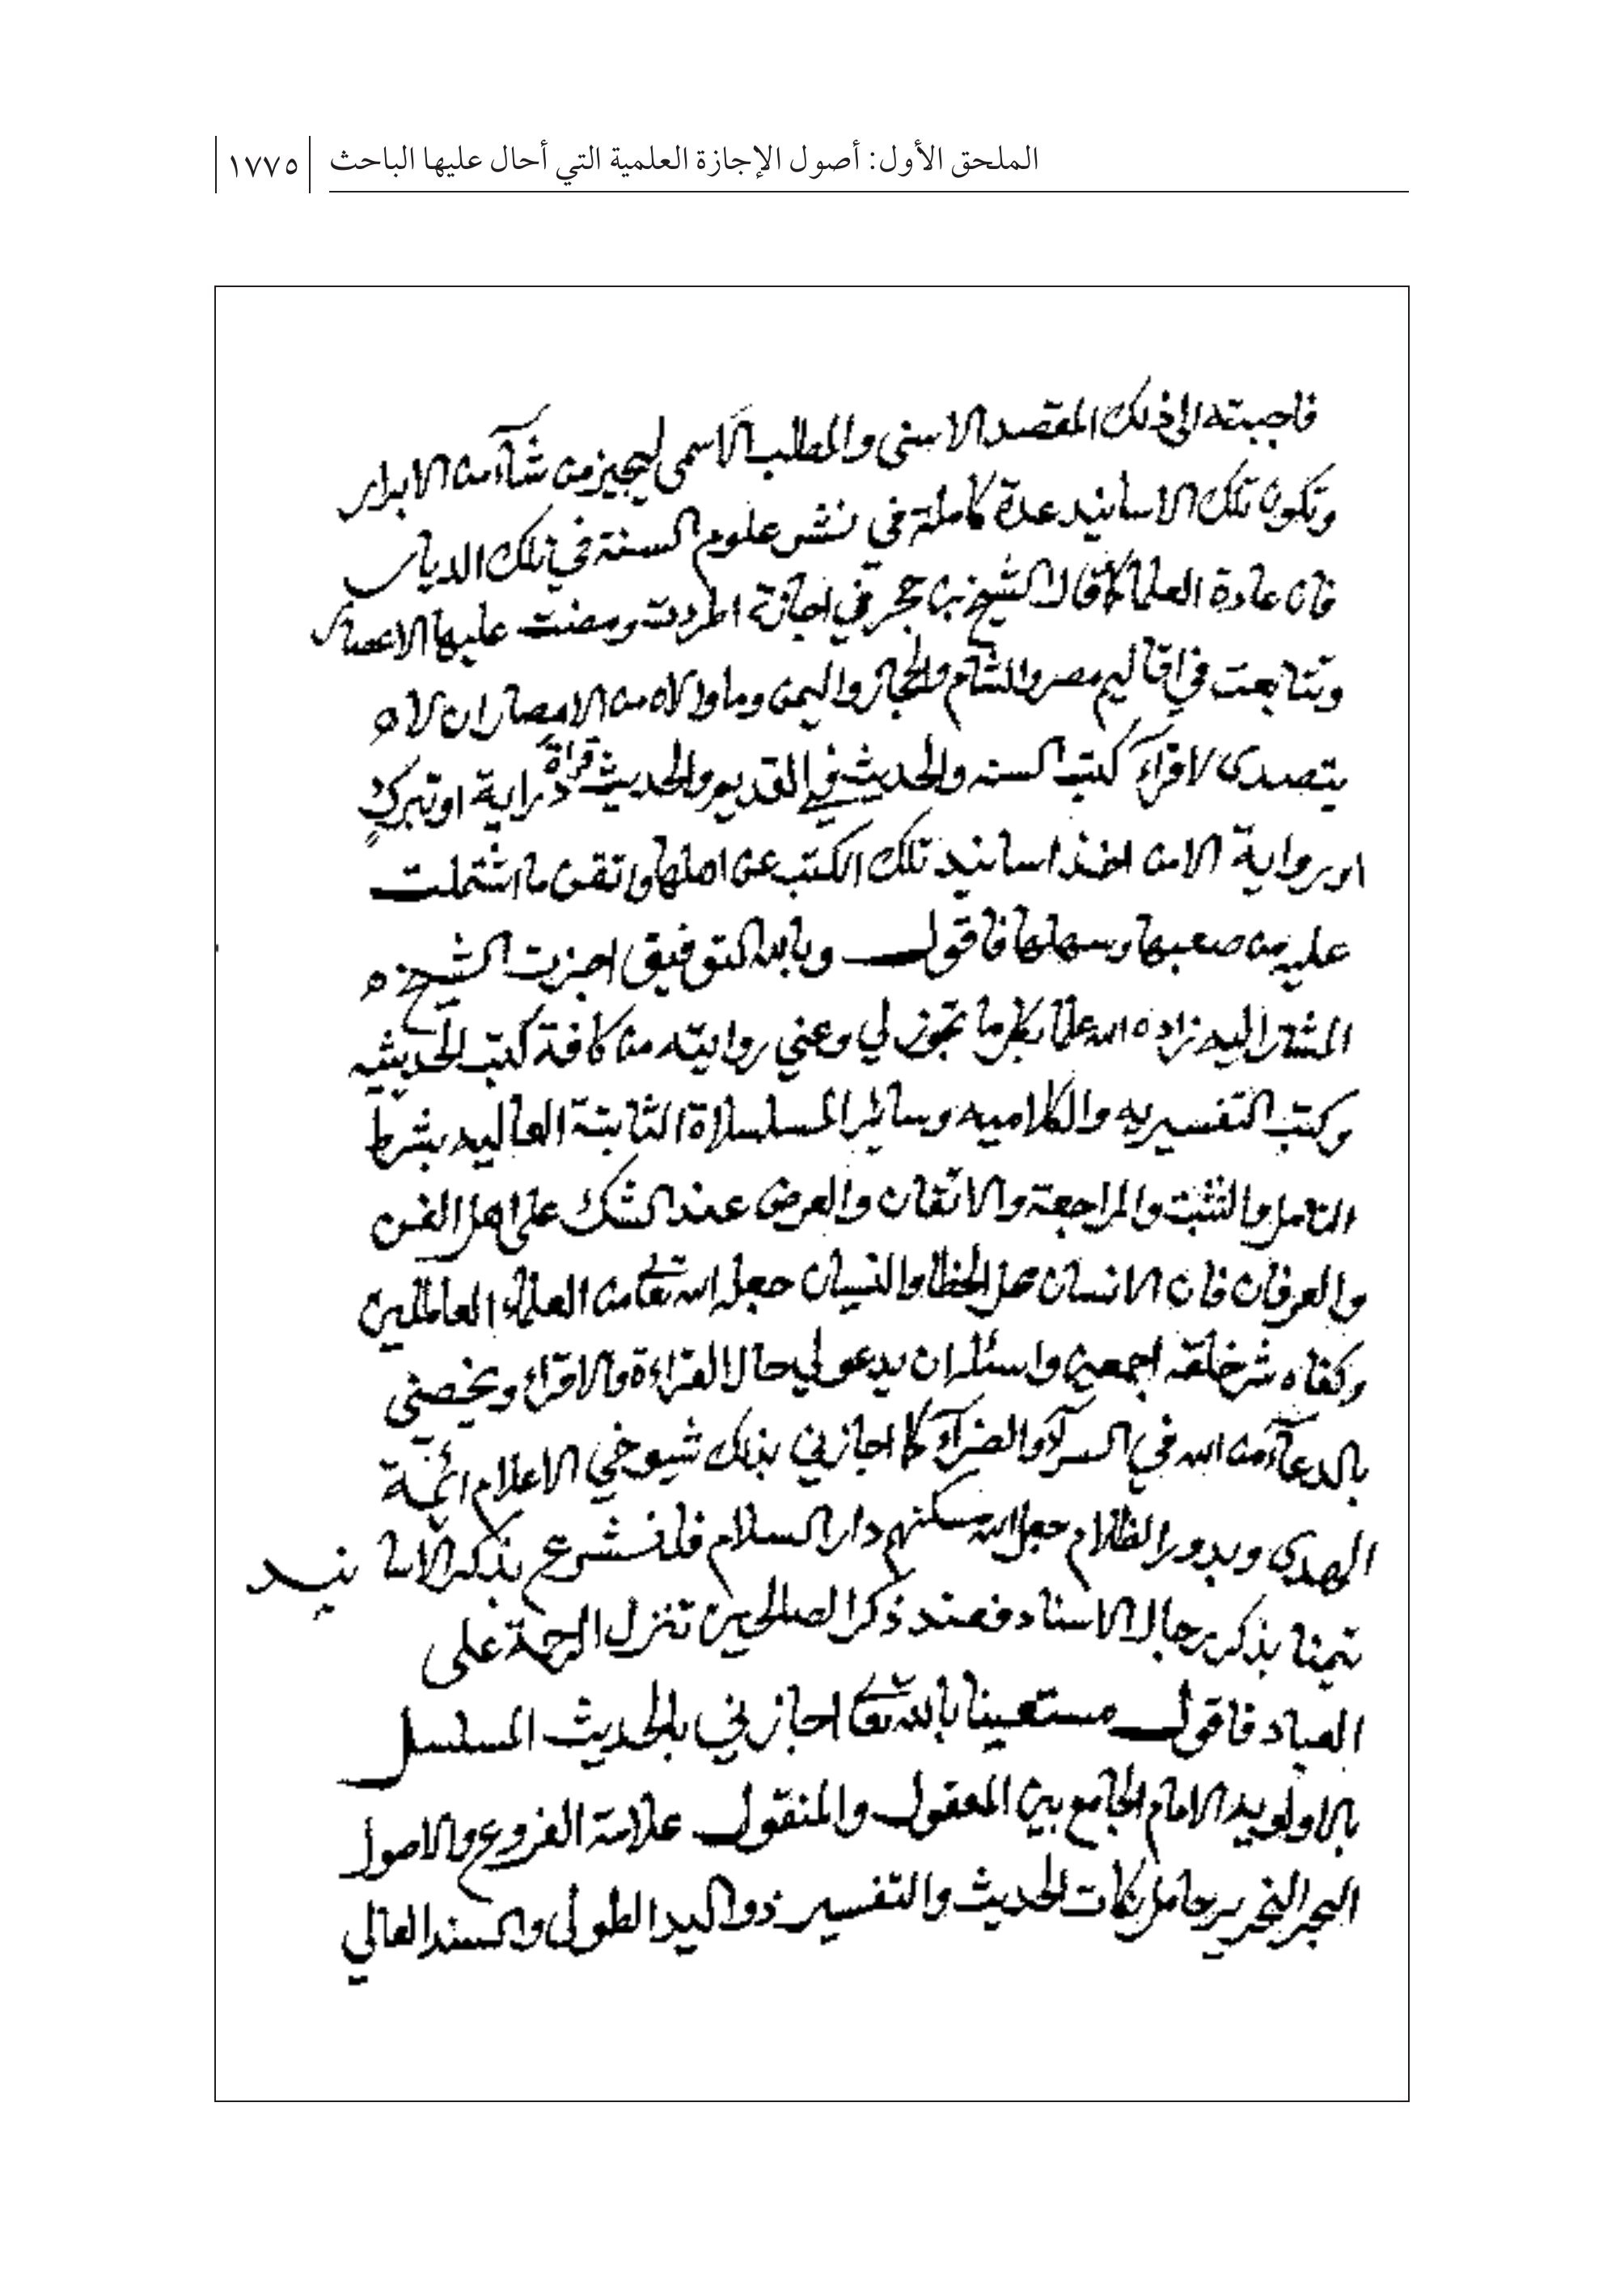 الملحق الأول: أصول الإجازة العلمية التي أحال عليها الباحث ١٧٧٥
فاجبته الى ذلك المقصد الاسنى والمطلب الاسمى ليجيز من شآء من الابرار
وتكون تلك الاسانيد عدة كاملة في نشر علوم السنة في تلك الديار
فان عادة العلما كما قال الشيخ بن حجر في اجازة اطردت ومضت عليها الاعصار
وتتابعت في اقاليم مصر والشام والحجاز واليمن وما والاه من الامصار ان لا ه
يتصدى لاقراء كتب السنه والحديث في القديم والحديث قراة دراية او تبرك
او رواية الا من اخذ اسانيد تلك الكتب عن اهلها واتقن ما اشتملت
عليه من صعبها وسهلها فاقول وبالله التوفيق اجزت الشيخ ه
المشار اليه زاده الله علما بكل ما تجوز لي وعني روايته من كافة كتب الحديثيه
وكتب التفسيريه والكلاميه وسائر المسلسلاة الثابتة العاليه بشرط
التامل والتثبت والمراجعة والاتقان والعرض عند الشك على اهل الفن
والعرفان فان الانسان محل الخطا والنسيان جعله الله تعالى من العلماء العاملين
وكفاه شر خلقه اجمعين واسئله ان يدعو لي حال القراءة والاقراء ويخصني
بالدعآء من الله في السرآء والضرآء كما اجازني بذلك شيوخي الاعلام ائمة
الهدى وبدور الظلام جعل الله مسكنهم دار السلام فلنشرع بذكر الاسانيد
تيمنا بذكر رجال الاسناد فعند ذكر الصالحين تنزل الرحمة على
العباد فاقول مستعينا بالله تعالى اجازني بالحديث المسلسل
بالاولويه الامام الجامع بين المعقول والمنقول علامة الفروع والاصول
البحر النحرير حامل نكات الحديث والتفسير ذو اليد الطولى والسند العالي